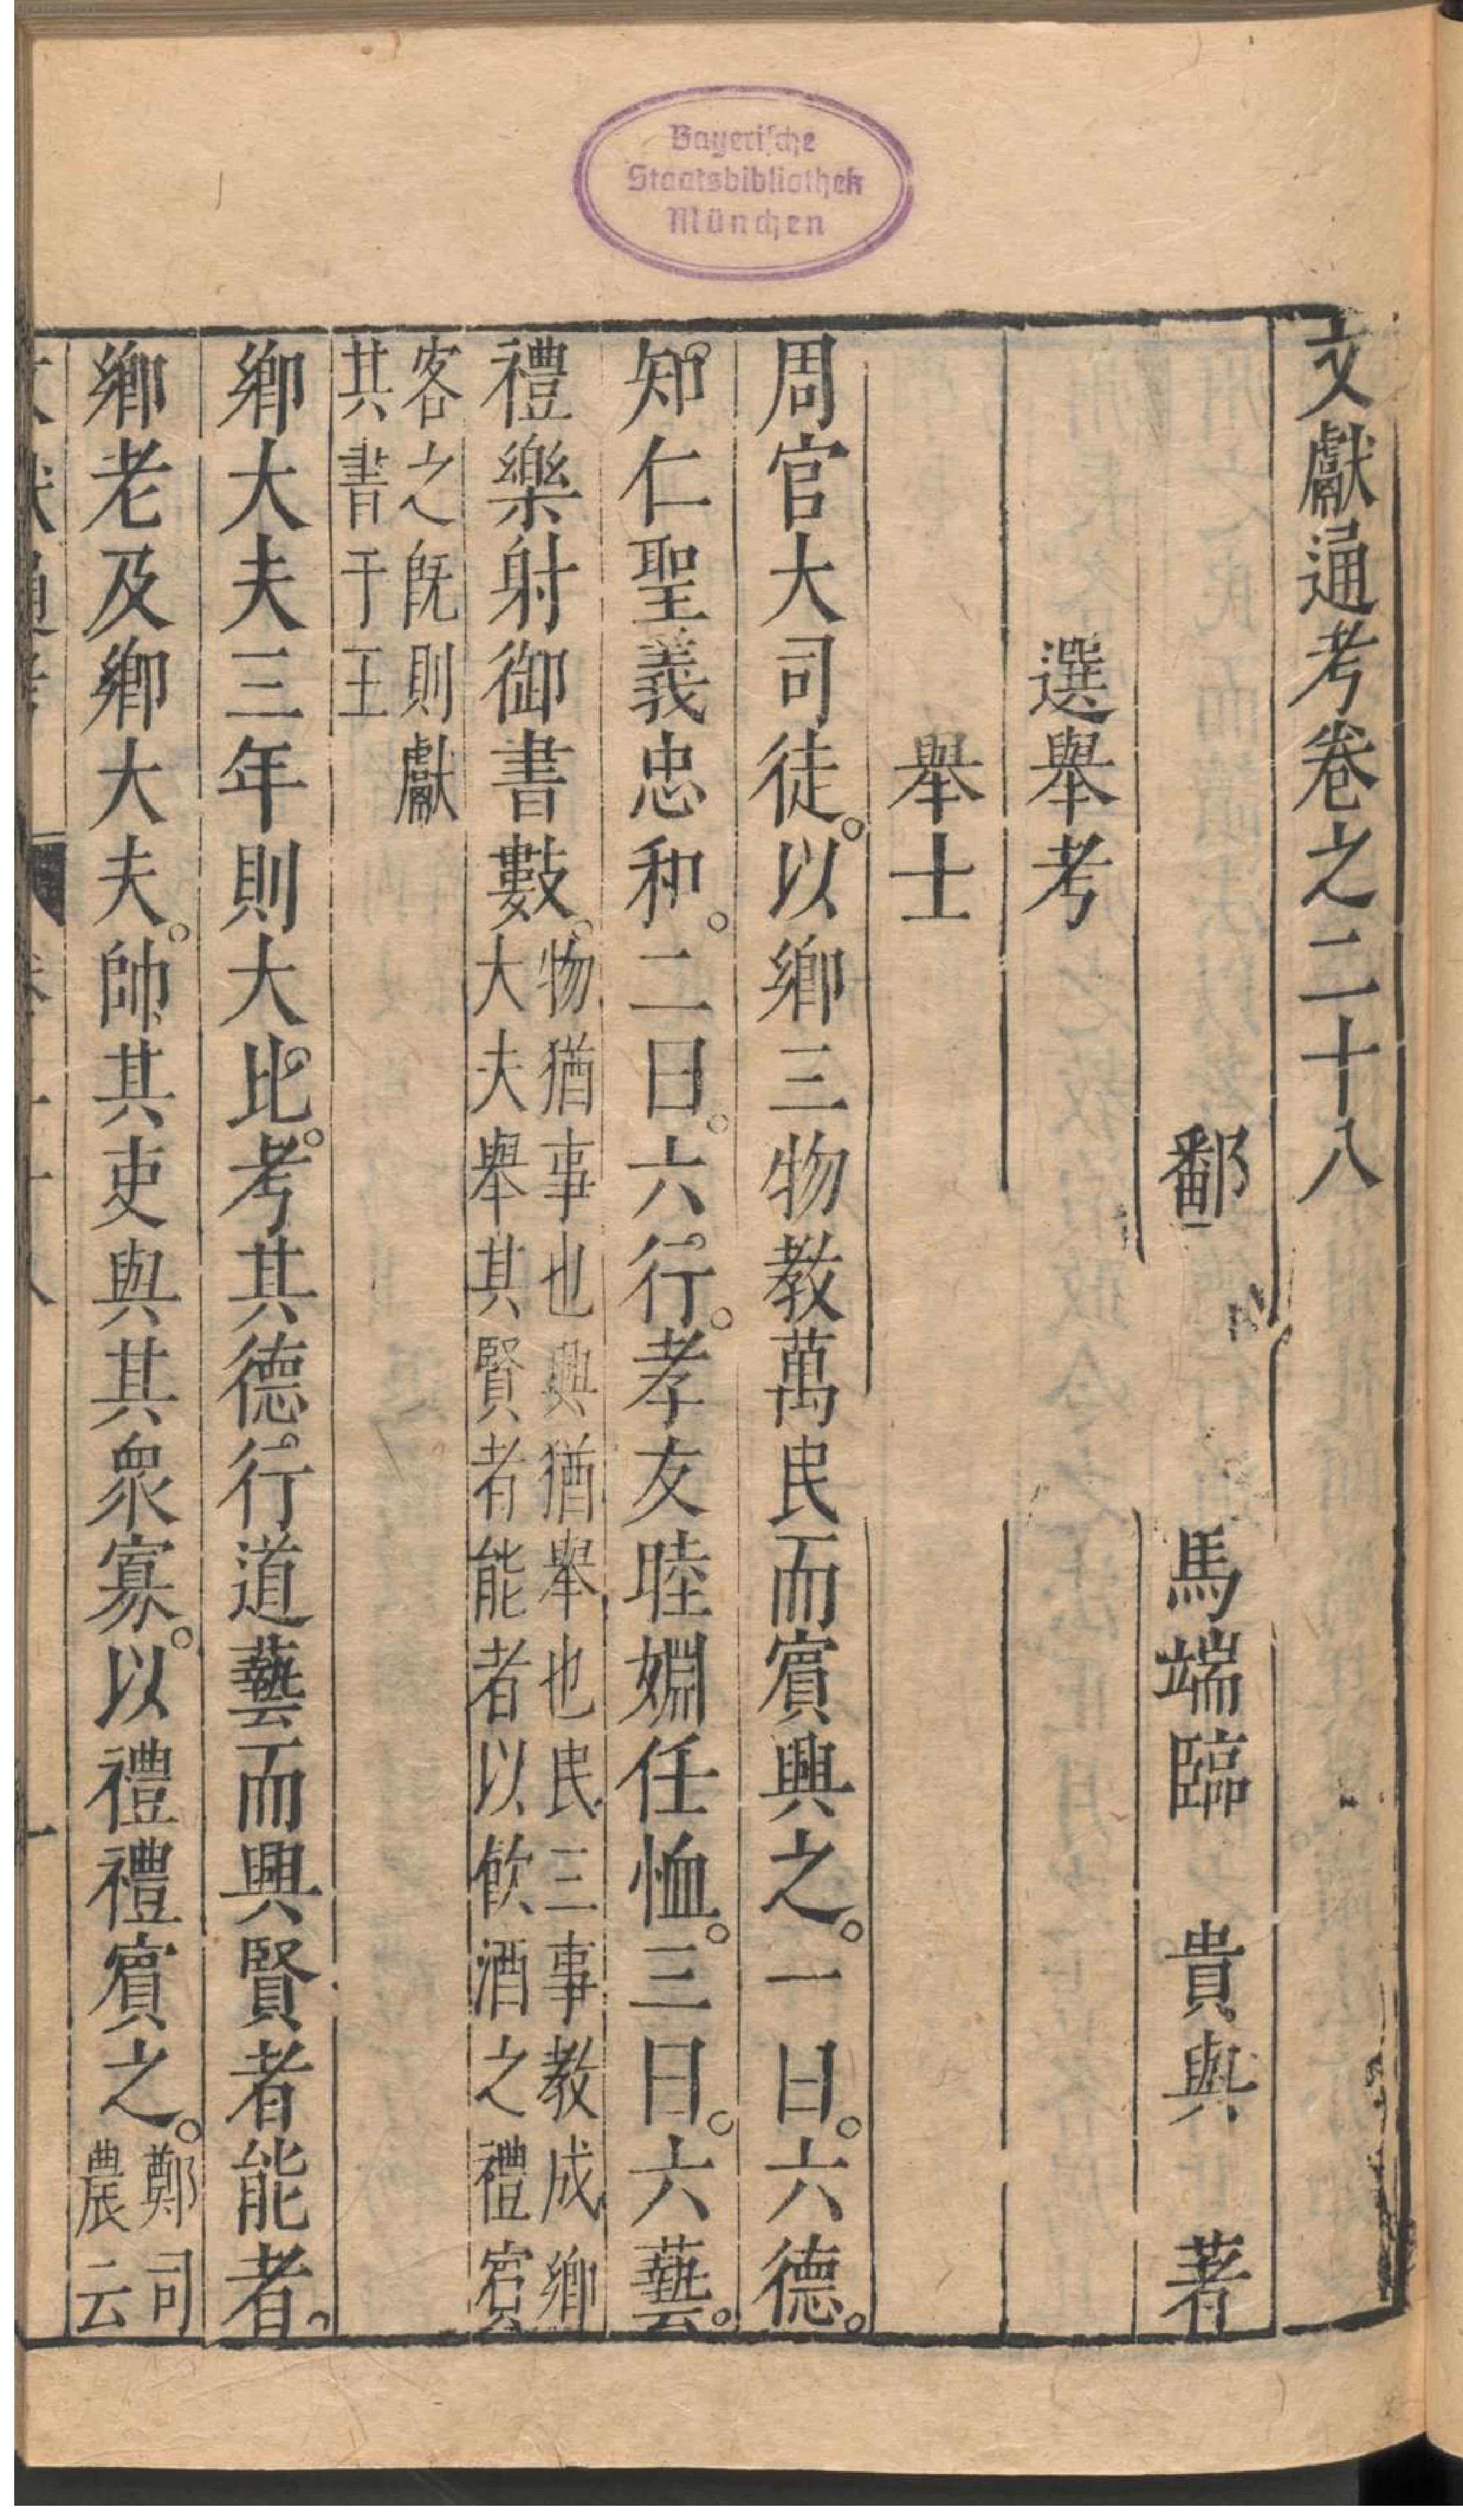 Bayerische
Staatsbibliothek
München
文獻通考卷之二十八
鄱 馬端臨 貴與 著
選舉考
舉士
周官大司徒。以鄉三物教萬民而賔興之。一曰。六德。
知仁聖義忠和。二曰。六行。孝友睦婣任恤。三曰。六藝。
禮樂射御書數。物猶事也興猶舉也民三事教成鄉
大夫舉其賢者能者以飲酒之禮賔
客之旣則獻
其書于王
鄉大夫三年則大比。考其德行道藝而興賢者能者。
鄉老及鄉大夫。帥其吏與其衆寡。以禮禮賔之。鄭司
農云